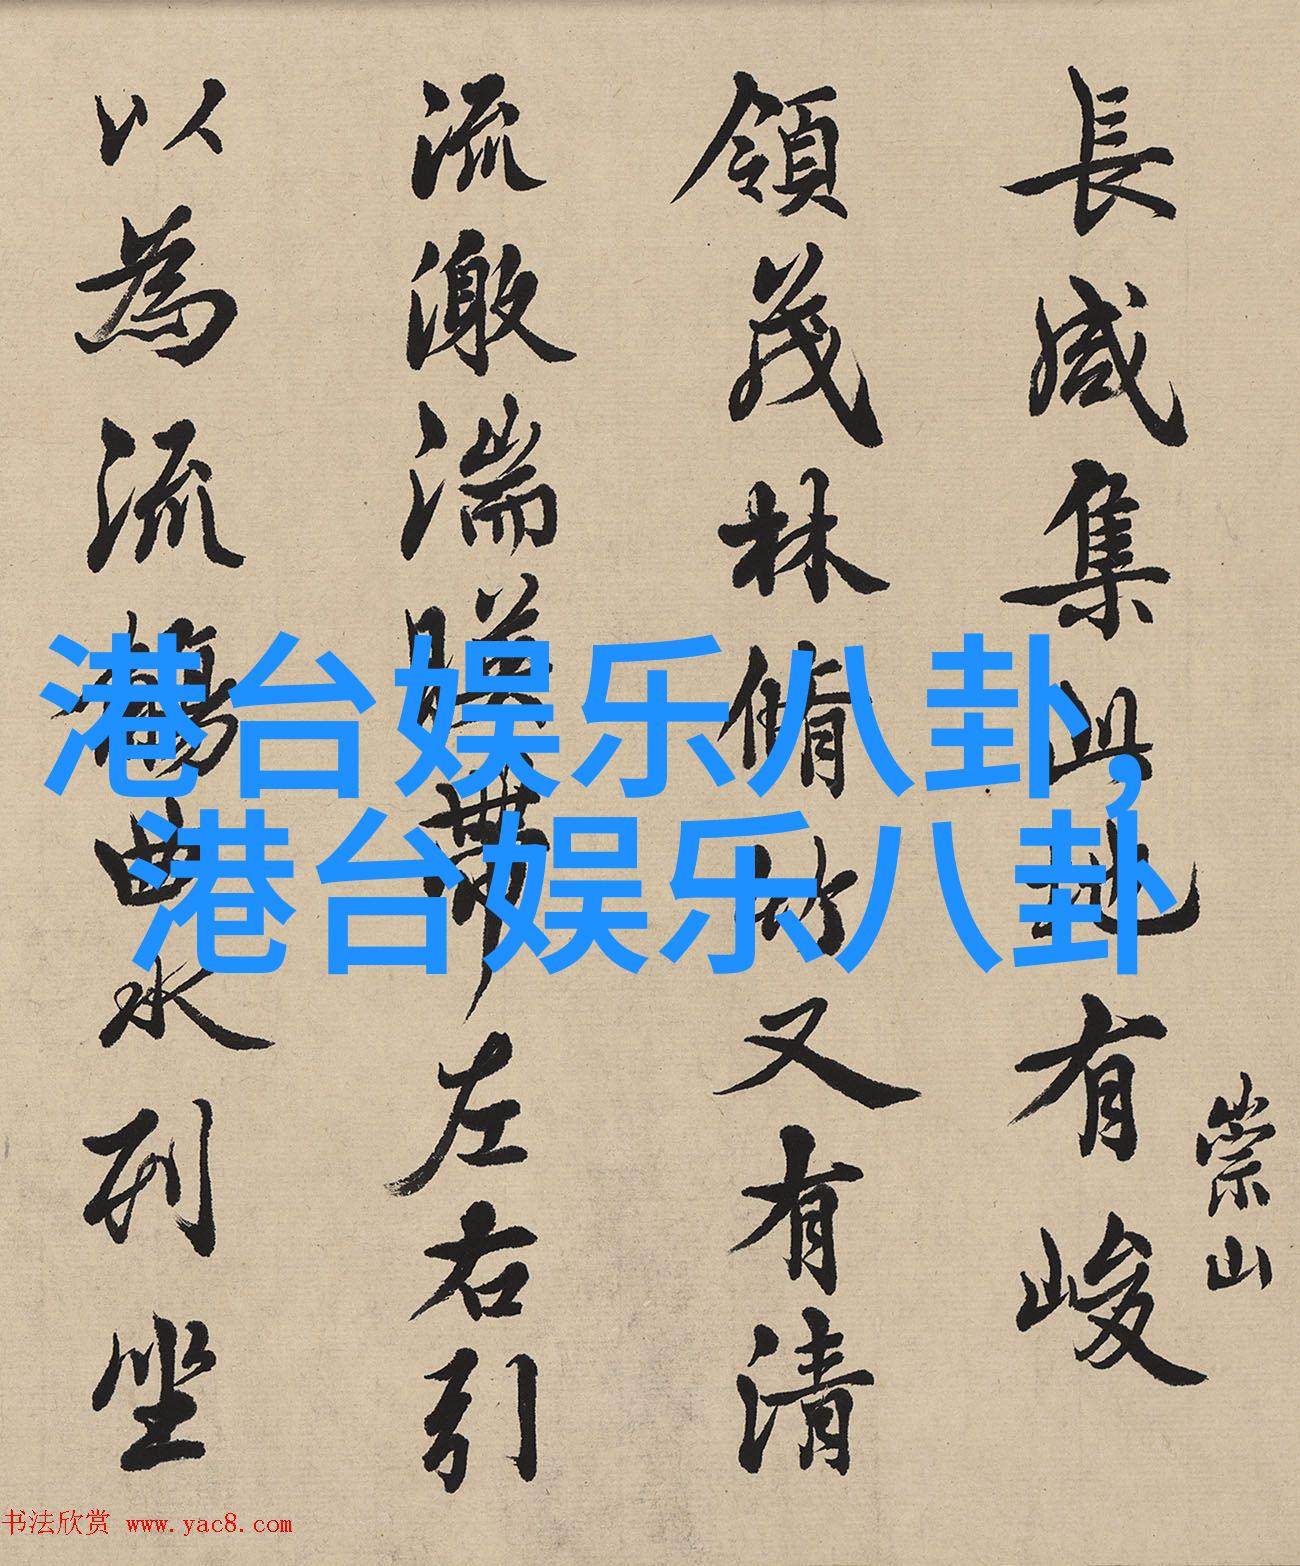 長咸集此地有峻
崇山
領茂林脩竹又有清
流激湍暎帶左右引
以為流觴曲水列坐
港台娱乐八卦,
港台娱乐八卦
书法欣赏 www.yac8.com